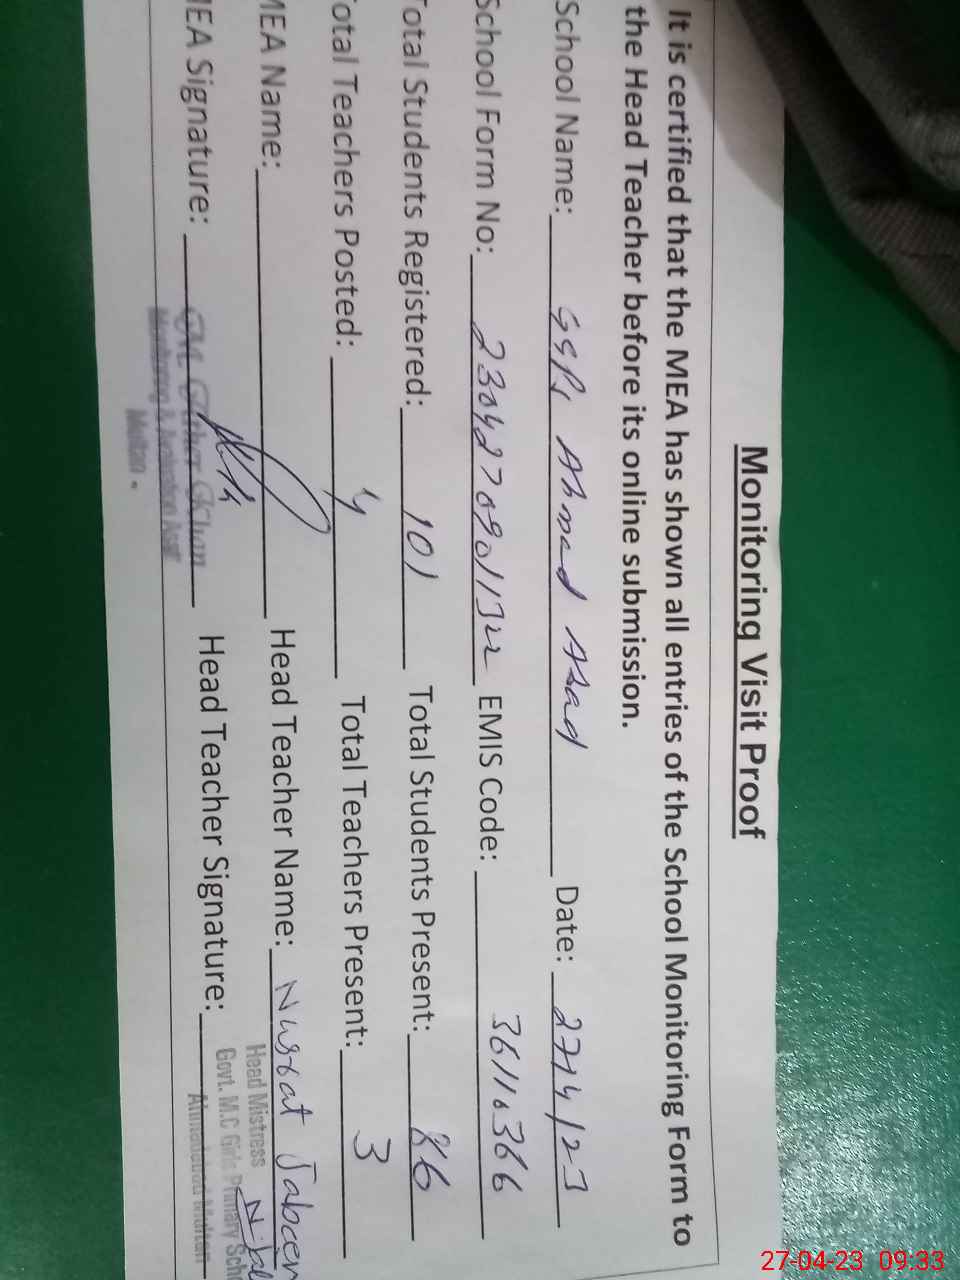 Monitoring Visit Proof
It is certified that the MEA has shown all entries of the School Monitoring Form to
the Head Teacher before its online submission.
School Name: GGPS Ahmad Abad Date: 27/4/23
School Form No: EMIS Code: 36110366
Total Students Registered: 101 Total Students Present: 86
Total Teachers Posted: 4 Total Teachers Present: 3
MEA Name: Head Teacher Name: Nusrat Jabeen
MEA Signature: Head Teacher Signature:
Head Mistress
Govt. M.C Girls Primary Sch
Multan
27-04-23 09:33